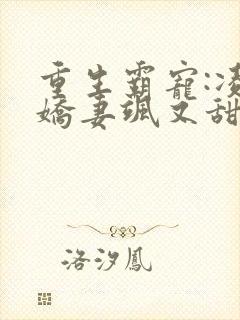 重生霸寵:凌
嬌妻颯又甜
洛汐鳳